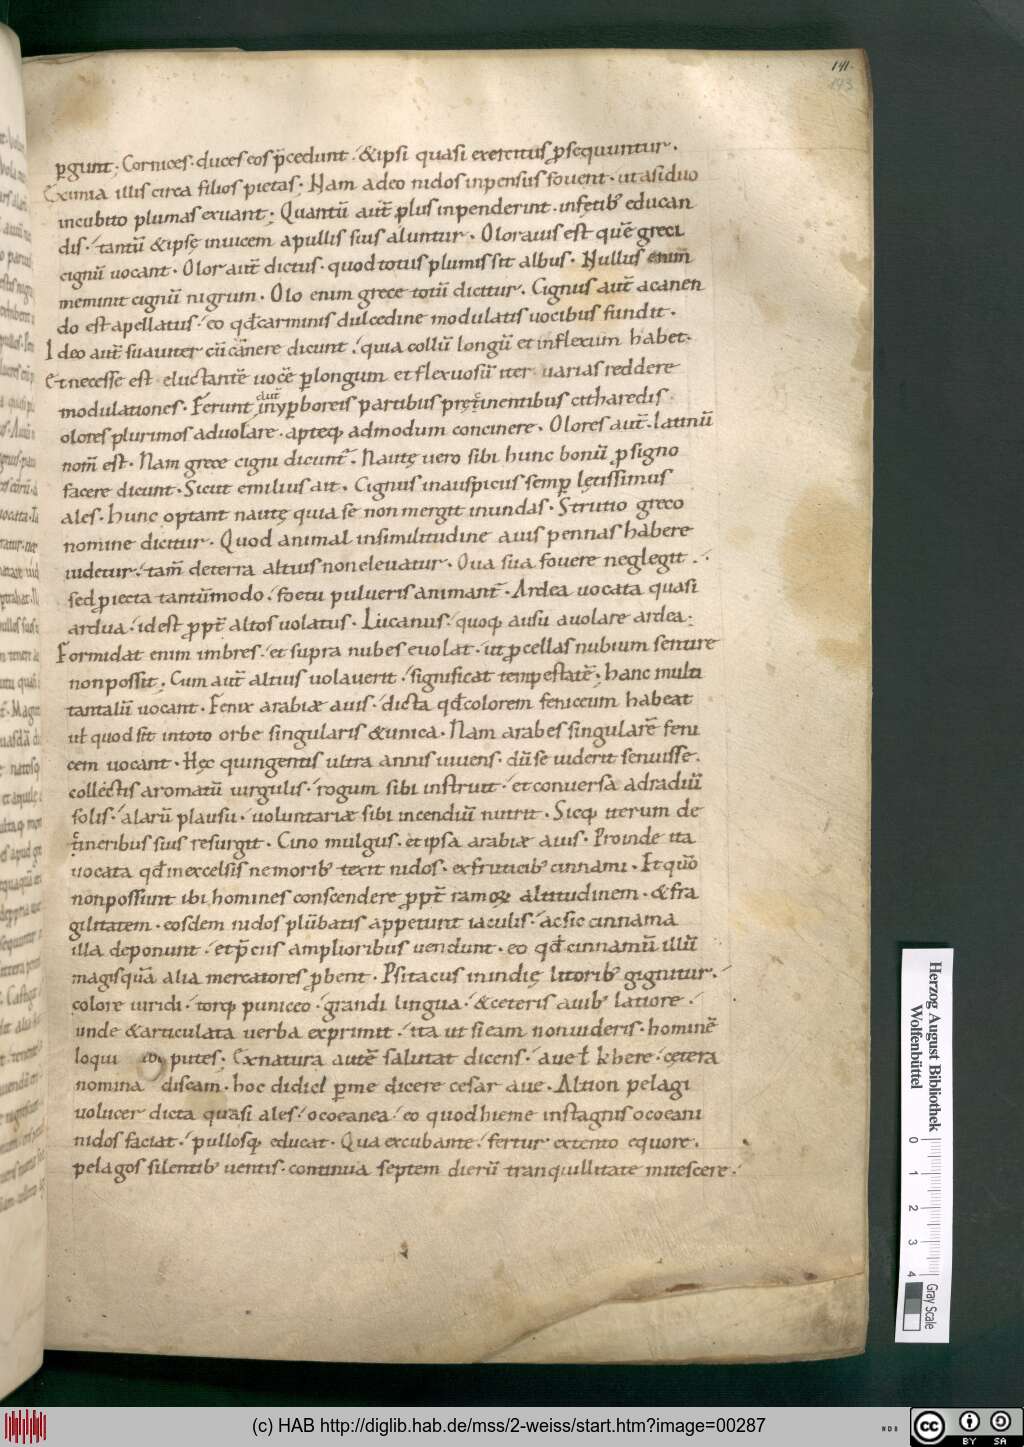 141.
143
pgunt; Cornices. duces eos p̄cedunt. &ipsi quasi exercitus psequuntur.
Eximia illis circa filios pietas; Nam adeo nidos inpensius fouent. ut asiduo
incubito plumas exuant; Quantū aut̄ plus inpenderint. infętib; educan
dis. tantū &ipsę inuicem apullis suis aluntur. Olor auis est quē greci
cignū uocant. Olor aut̄ dictus. quod totus plumis sit albus. Nullus enim̄
meminit cignū nigrum. Olo enim grece totū dicitur. Cignus aut̄ a canen
do est apellatus. eo qđ carminis dulcedine modulatis uocibus fundit.
Ideo aut̄ suauiter eū cānere dicunt. quia collū longū et inflexum habet.
Et necesse est eluctantē uocē plongum et flexuosū iter uarias reddere
modulationes. Ferunt in yperboreis partibus pręcinentibus citharedis
olores plurimos aduolare. apteq; admodum concinere. Olores aut̄. latinū
nom̄ est. Nam grece cigni dicunt̄. Nautę uero sibi hunc bonū p signo
facere dicunt. Sicut emilius ait. Cignus inauspicus semp lętissimus
ales. hunc optant nautę quia se non mergit inundas. Strutio greco
nomine dicitur. Quod animal insimilitudine auis pennas habere
uidetur. tam̄ deterra altius non eleuatur. Oua sua fouere neglegit.
sed piecta tantūmodo. foetu pulueris animant̄. Ardea uocata quasi
ardua. id est ppt̄ altos uolatus. Lucanus. quoq; ausu auolare ardea;
Formidat enim imbres. et supra nubes euolat. ut pcellas nubium sentire
non possit; Cum aut̄ altius uolauerit. significat tempestatē; hanc multi
tantalū uocant. Fenix arabiæ auis. dicta qđ colorem feniceum habeat
uł quod sit intoto orbe singularis &unica. Nam arabes singularē feni
cem uocant. Hęc quingentis ultra annis uiuens. dū se uiderit senuisse.
collectis aromatū uirgulis. rogum sibi instruit. et conuersa adradiū
solis. alarū plausu. uoluntariæ sibi incendiū nutrit. Sicq; iterum de
cineribus suis resurgit. Cino mulgus. et ipsa arabiæ auis. Proinde ita
uocata qđ inexcelsis nemorib; texit nidos. exfruticib; cinnami. Et quō
non possunt ibi homines conscendere ppt̄ ramoꝝ altitudinem. &fra
gilitatem. eosdem nidos plūbatis appetunt iaculis. ac sic cinnama
illa deponunt. et p̄cius amplioribus uendunt. eo qđ cinnamū illū
magis quā alia mercatores pbent. Psitacus in indię litorib; gignitur.
colore uiridi. torq; puniceo. grandi lingua. &ceteris auib; latiore.
unde &articulata uerba exprimit. ita ut si eam non uideris. hominē
loqui putes; Exnatura autē salutat dicens. aue ł khere. cętera
nomina discam. hoc didici p me dicere cesar aue. Altion pelagi
uolucer dicta quasi ales. ocoeanea. eo quod hieme instagnis ocoeani
nidos faciat. pullosq; educat. Qua excubante. fertur extento equore.
pelagos silentib; uentis. continua septem dierū tranquillitate mitescere.
Herzog August Bibliothek
Wolfenbüttel
0 1 2 3 4
Gray Scale
(c) HAB http://diglib.hab.de/mss/2-weiss/start.htm?image=00287
cc BY SA